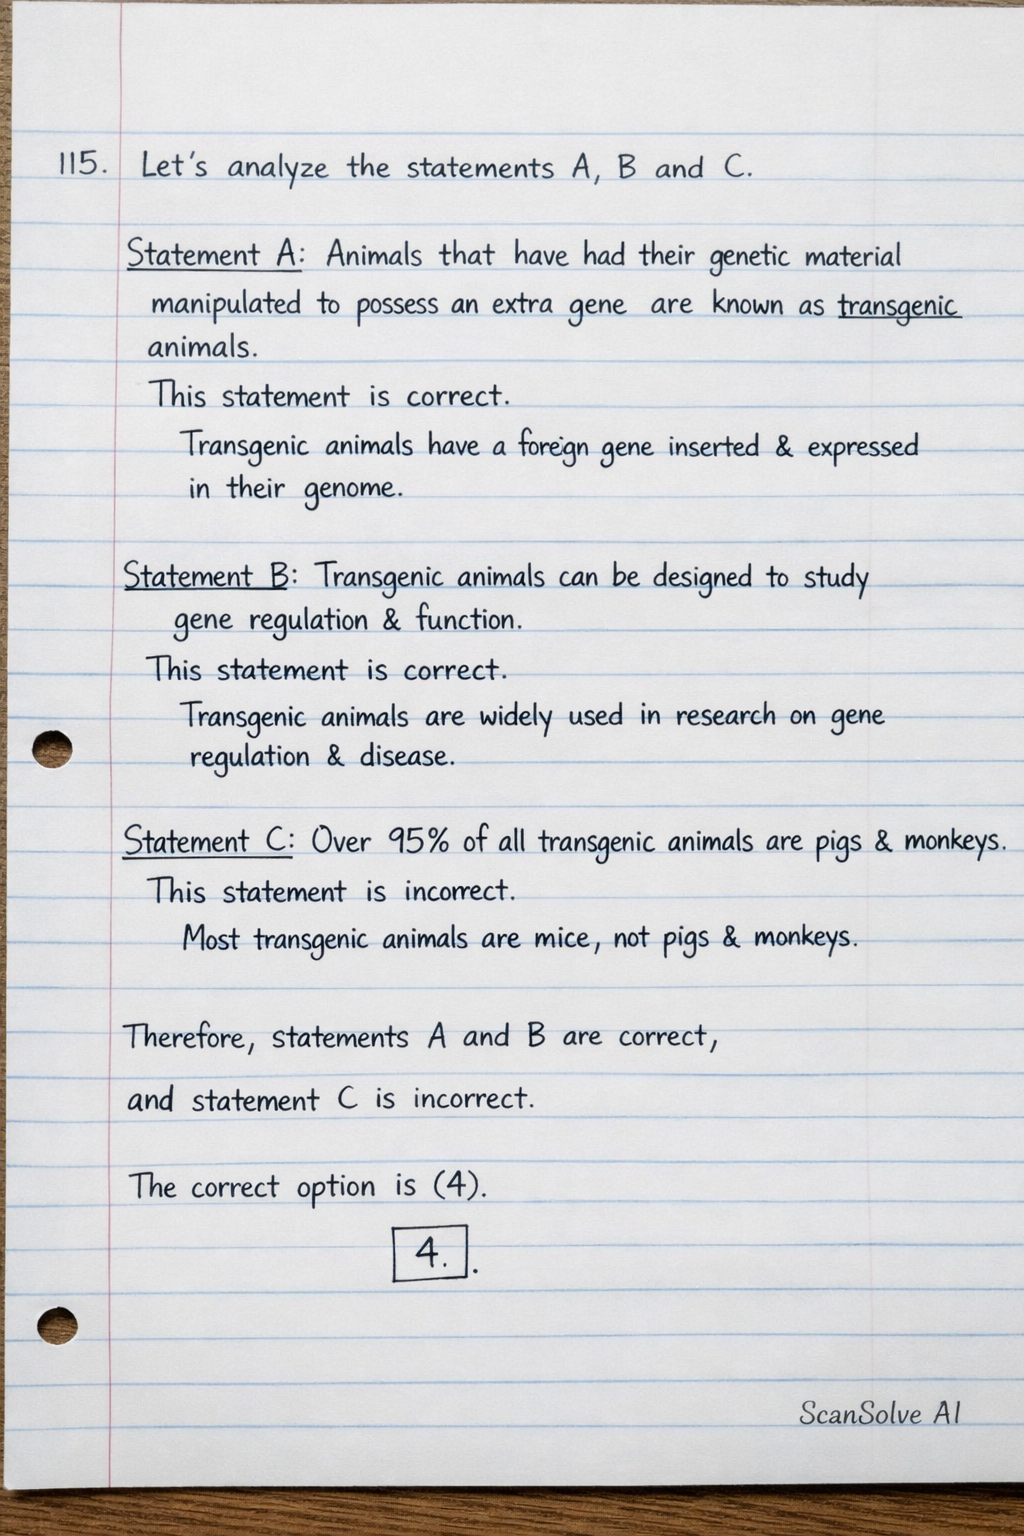 115. Let's analyze the statements A, B and C.
Statement A: Animals that have had their genetic material
manipulated to possess an extra gene are known as transgenic
animals.
This statement is correct.
Transgenic animals have a foreign gene inserted & expressed
in their genome.
Statement B: Transgenic animals can be designed to study
gene regulation & function.
This statement is correct.
Transgenic animals are widely used in research on gene
regulation & disease.
Statement C: Over 95% of all transgenic animals are pigs & monkeys.
This statement is incorrect.
Most transgenic animals are mice, not pigs & monkeys.
Therefore, statements A and B are correct,
and statement C is incorrect.
The correct option is (4).
4. .
ScanSolve AI